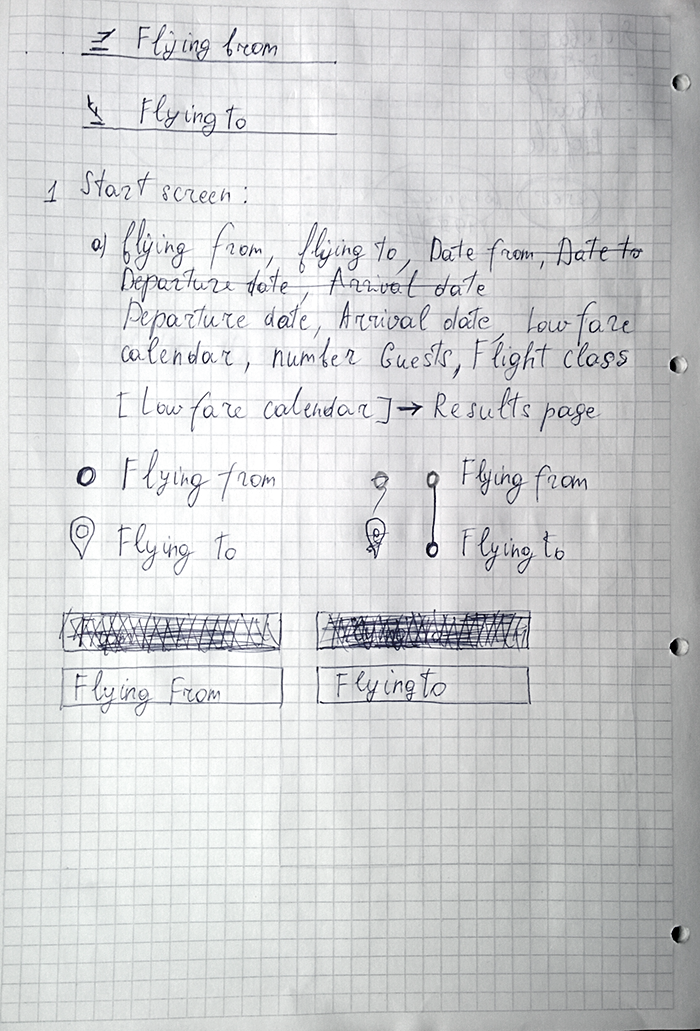 Flying from
Flying to
1 Start screen:
a) flying from, flying to, Date from, Date to
Departure date, Arrival date
Departure date, Arrival date, Low fare
calendar, number Guests, Flight class
[Low fare calendar] → Results page
Flying from
Flying to
Flying from
Flying to
Flying From
Flying to